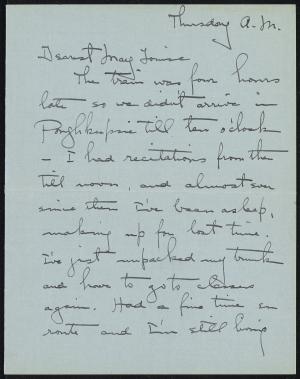 Thursday A.M.
Dearest May Louise
The train was four hours
late so we didn't arrive in
Poughkeepsie till ten o'clock
- I had recitations from then
till noon, and almost ever
since then I've been asleep,
making up for lost time.
I've just unpacked my trunk
and have to go to classes
again. Had a fine time en
route and I'm still living